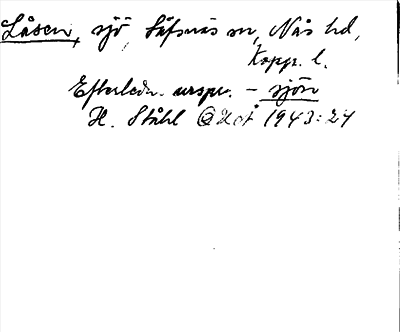 Låsen, sjö, Säfsnäs sn, Nås hd,
Kopp. l.
Efterledn. urspr. - sjön
H. Ståhl 1943:24